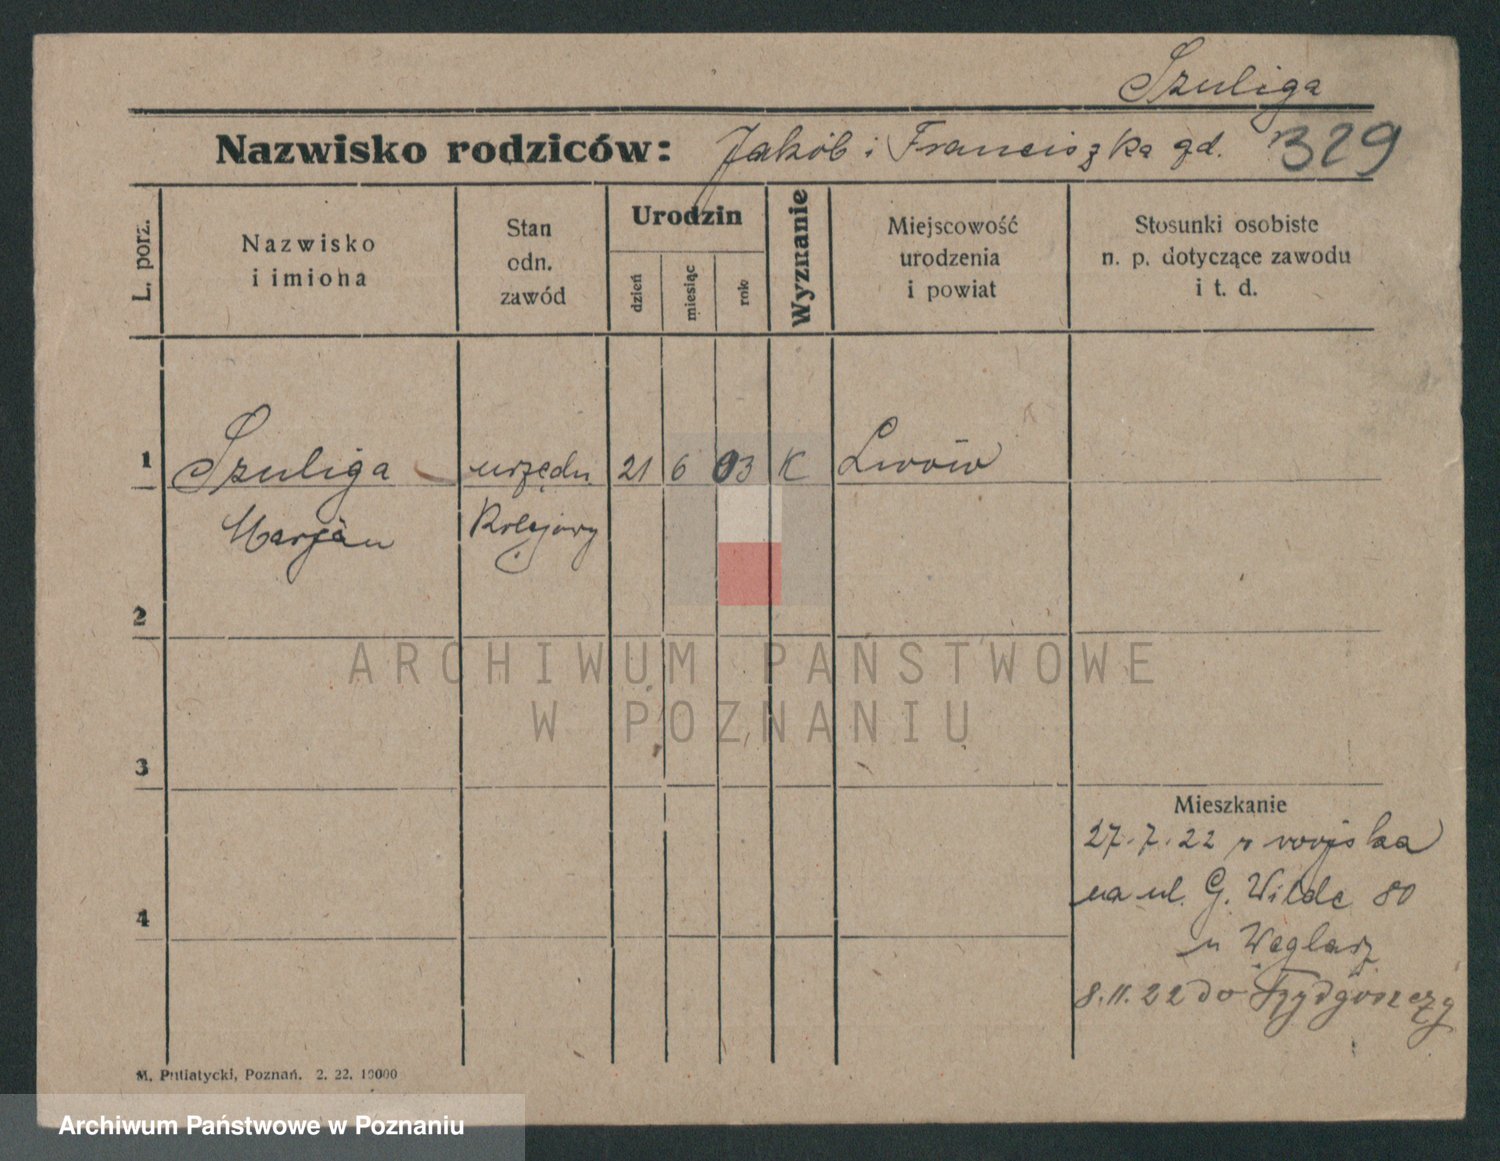 Szuliga
Nazwisko rodziców: Jakób i Franciszka zd. 1329
L. porz.
Nazwisko
i imiona
Stan
odn.
zawód
Urodzin
dzień
miesiąc
rok
Wyznanie
Miejscowość
urodzenia
i powiat
Stosunki osobiste
n. p. dotyczące zawodu
i t. d.
1 Szuliga urzędn. 21 6 03 K Lwów
Marjan Kolejowy
2
3
4
Mieszkanie
27.7.22 z wojska
na ul. G. Wilde 80
u Węglarz
8.11.22 do Bydgoszczy
M. Putiatycki, Poznań. 2. 22. 10000
ARCHIWUM PAŃSTWOWE
W POZNANIU
Archiwum Państwowe w Poznaniu